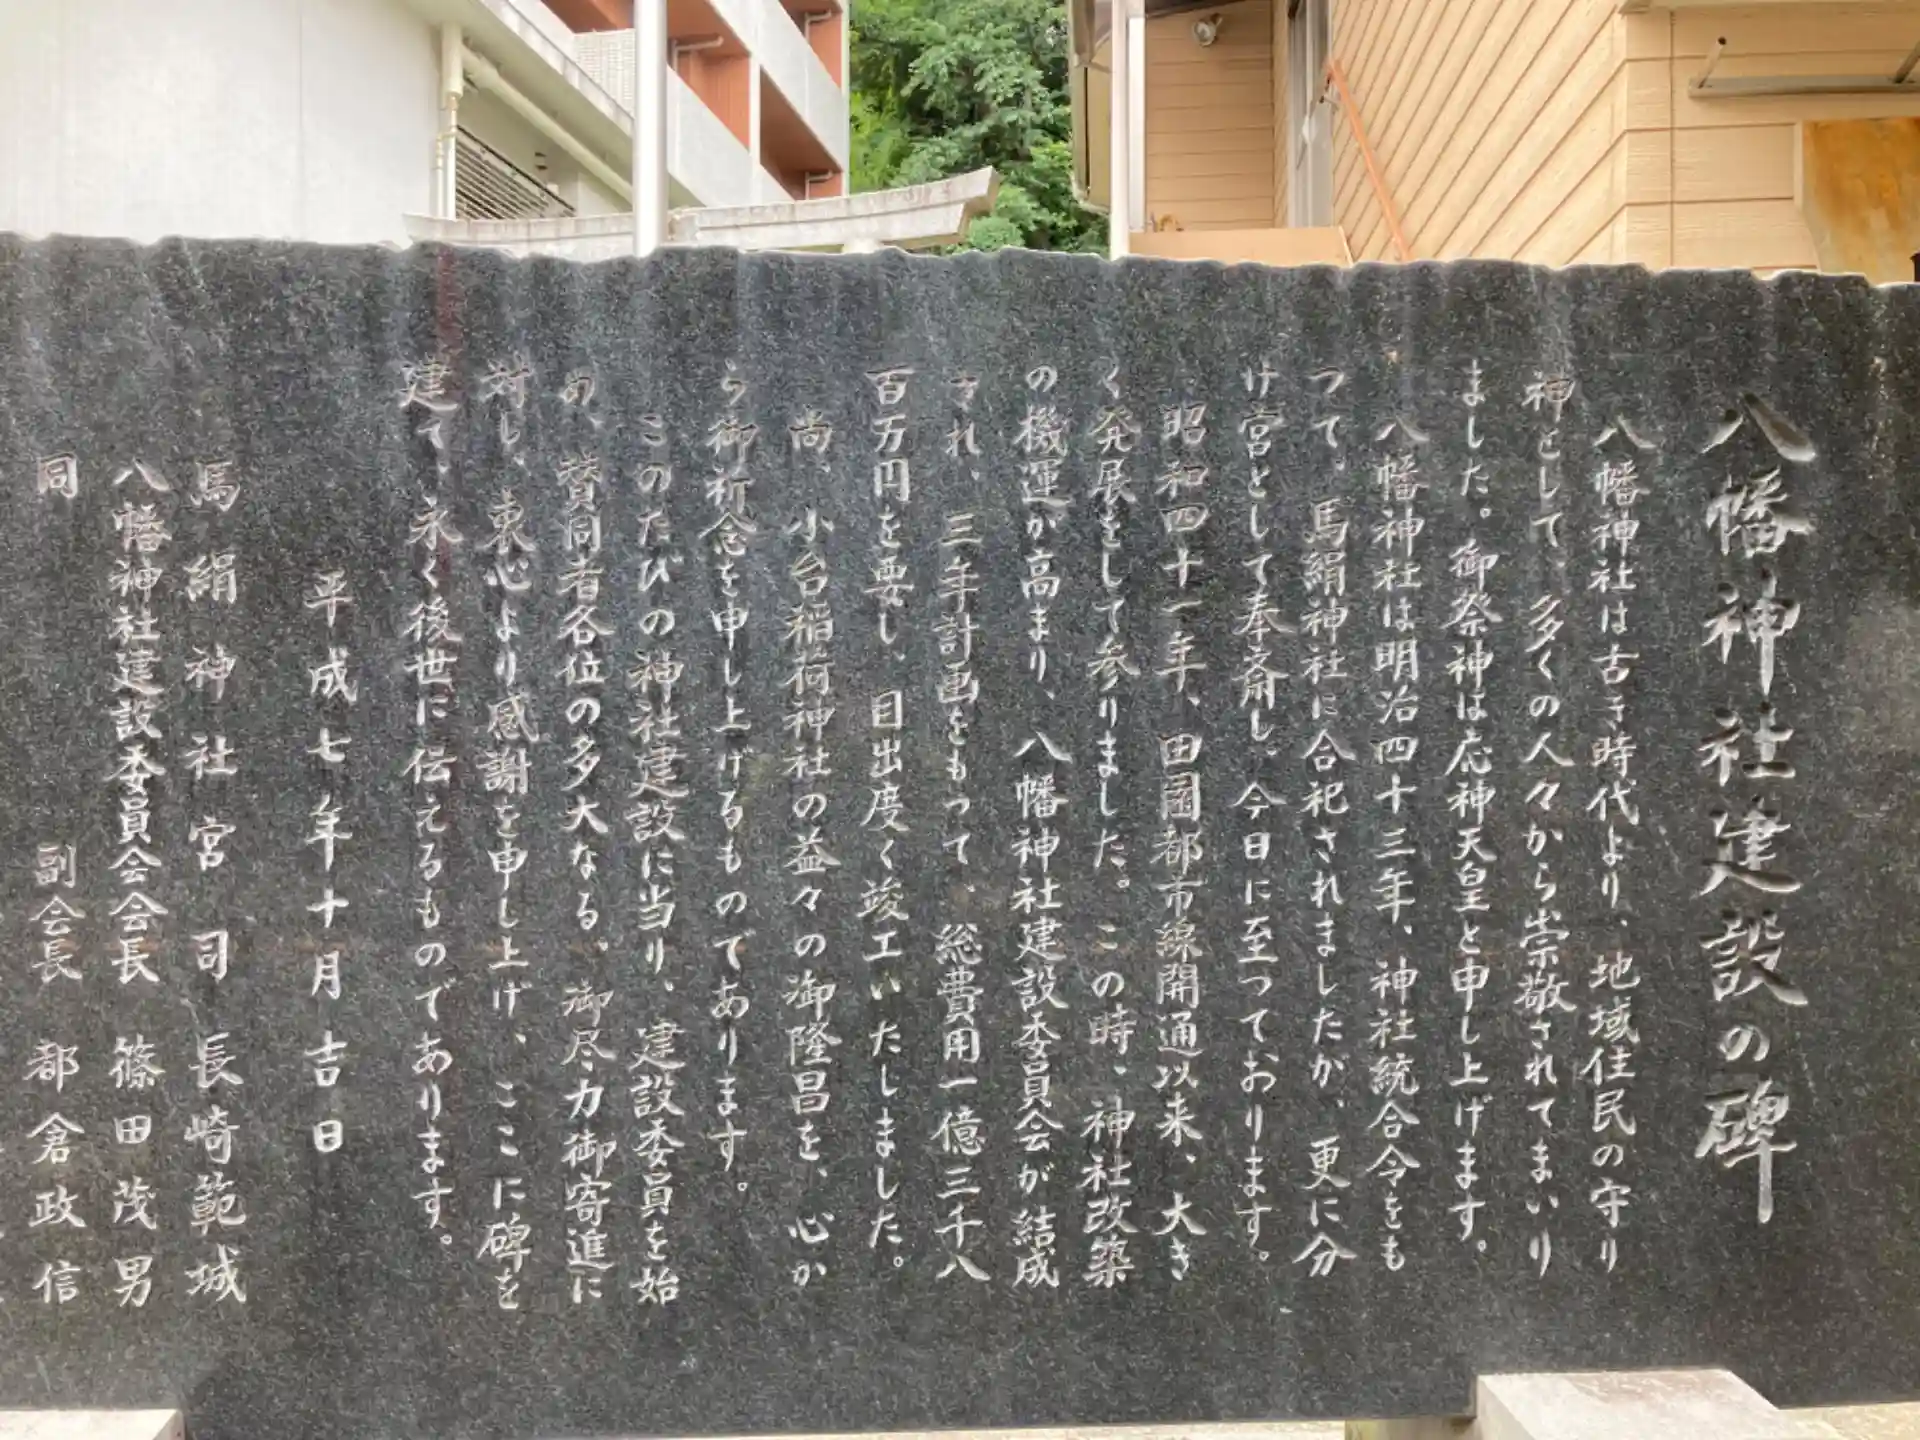 八幡神社建設の碑
八幡神社は古き時代より、地域住民の守り
神として、多くの人々から崇敬されてまいり
ました。御祭神は応神天皇と申し上げます。
八幡神社は明治四十三年、神社統合令をも
つて、馬絹神社に合祀されましたが、更に分
け宮として奉斎し、今日に至つております。
昭和四十一年、田園都市線開通以来、大き
く発展をして参りました。この時、神社改築
の機運が高まり、八幡神社建設委員会が結成
され、三年計画をもつて、総費用一億三千八
百万円を要し、目出度く竣工いたしました。
尚、小台稲荷神社の益々の御隆昌を、心か
ら御祈念を申し上げるものであります。
このたびの神社建設に当り、建設委員を始
め、賛同者各位の多大なる、御尽力御寄進に
対し、衷心より感謝を申し上げ、ここに碑を
建て、永く後世に伝えるものであります。
平成七年十月吉日
馬絹神社宮司 長崎範城
八幡神社建設委員会会長 篠田茂男
同 副会長 都倉政信